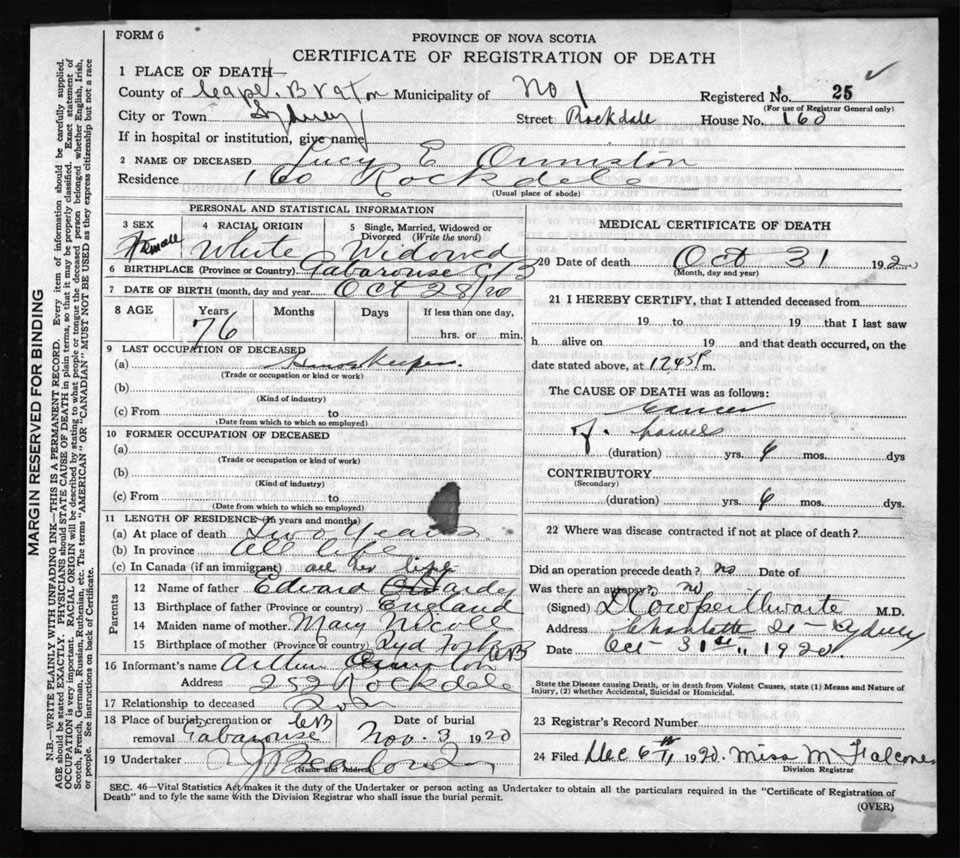 FORM 6
PROVINCE OF NOVA SCOTIA
CERTIFICATE OF REGISTRATION OF DEATH
1 PLACE OF DEATH—
County of Cape Breton Municipality of No 1 Registered No. 25
(For use of Registrar General only)
City or Town Sydney Street Rockdale House No. 160
If in hospital or institution, give name
2 NAME OF DECEASED Lucy E Ormiston
Residence 160 Rockdale
(Usual place of abode)
PERSONAL AND STATISTICAL INFORMATION
3 SEX 4 RACIAL ORIGIN 5 Single, Married, Widowed or Divorced (Write the word)
Female White Widowed
6 BIRTHPLACE (Province or Country) Gabarouse CB
7 DATE OF BIRTH (month, day and year) Oct 28/20
8 AGE Years Months Days If less than one day,
76 hrs. or min.
9 LAST OCCUPATION OF DECEASED
(a) Housekeeper
(Trade or occupation or kind or work)
(b)
(Kind of industry)
(c) From to
(Date from which to which so employed)
10 FORMER OCCUPATION OF DECEASED
(a)
(Trade or occupation or kind of work)
(b)
(Kind of industry)
(c) From to
(Date from which to which so employed)
11 LENGTH OF RESIDENCE (In years and months)
(a) At place of death Two years
(b) In province all life
(c) In Canada (if an immigrant) all her life
Parents
12 Name of father Edward Hardy
13 Birthplace of father (Province or country) England
14 Maiden name of mother Mary Nicoll
15 Birthplace of mother (Province or country) CB
16 Informant's name Arthur Ormiston
Address 252 Rockdale
17 Relationship to deceased Son
18 Place of burial, cremation or removal Gabarouse CB Date of burial Nov. 3 1920
19 Undertaker
(Name and Address)
MEDICAL CERTIFICATE OF DEATH
20 Date of death Oct 31 1920
(Month, day and year)
21 I HEREBY CERTIFY, that I attended deceased from
19 to 19 that I last saw
h alive on 19 and that death occurred, on the
date stated above, at 12.45 P m.
The CAUSE OF DEATH was as follows:
Cancer
of bowels
(duration) yrs. 6 mos. dys
CONTRIBUTORY
(Secondary)
(duration) yrs. 6 mos. dys.
22 Where was disease contracted if not at place of death?
Did an operation precede death? no Date of
Was there an autopsy? no
(Signed) D Cowperthwaite M.D.
Address Charlotte St - Sydney
Date Oct 31st 1920.
State the Disease causing Death, or in death from Violent Causes, state (1) Means and Nature of
Injury, (2) whether Accidental, Suicidal or Homicidal.
23 Registrar's Record Number
24 Filed Dec 6th 1920. Miss M Falconer
Division Registrar
SEC. 46—Vital Statistics Act makes it the duty of the Undertaker or person acting as Undertaker to obtain all the particulars required in the "Certificate of Registration of
Death" and to fyle the same with the Division Registrar who shall issue the burial permit.
(OVER)
MARGIN RESERVED FOR BINDING
N.B.—WRITE PLAINLY WITH UNFADING INK—THIS IS A PERMANENT RECORD. Every item of information should be carefully supplied.
AGE should be stated EXACTLY. PHYSICIANS should STATE CAUSE OF DEATH in plain terms, so that it may be properly classified. Exact statement of
OCCUPATION is very important. RACIAL ORIGIN will be described by stating to what people or tongue the deceased person belonged whether English, Irish,
Scotch, French, German, Russian, Ruthenian, etc. The terms "AMERICAN" OR "CANADIAN" MUST NOT BE USED as they express citizenship but not a race
or people. See instructions on back of Certificate.